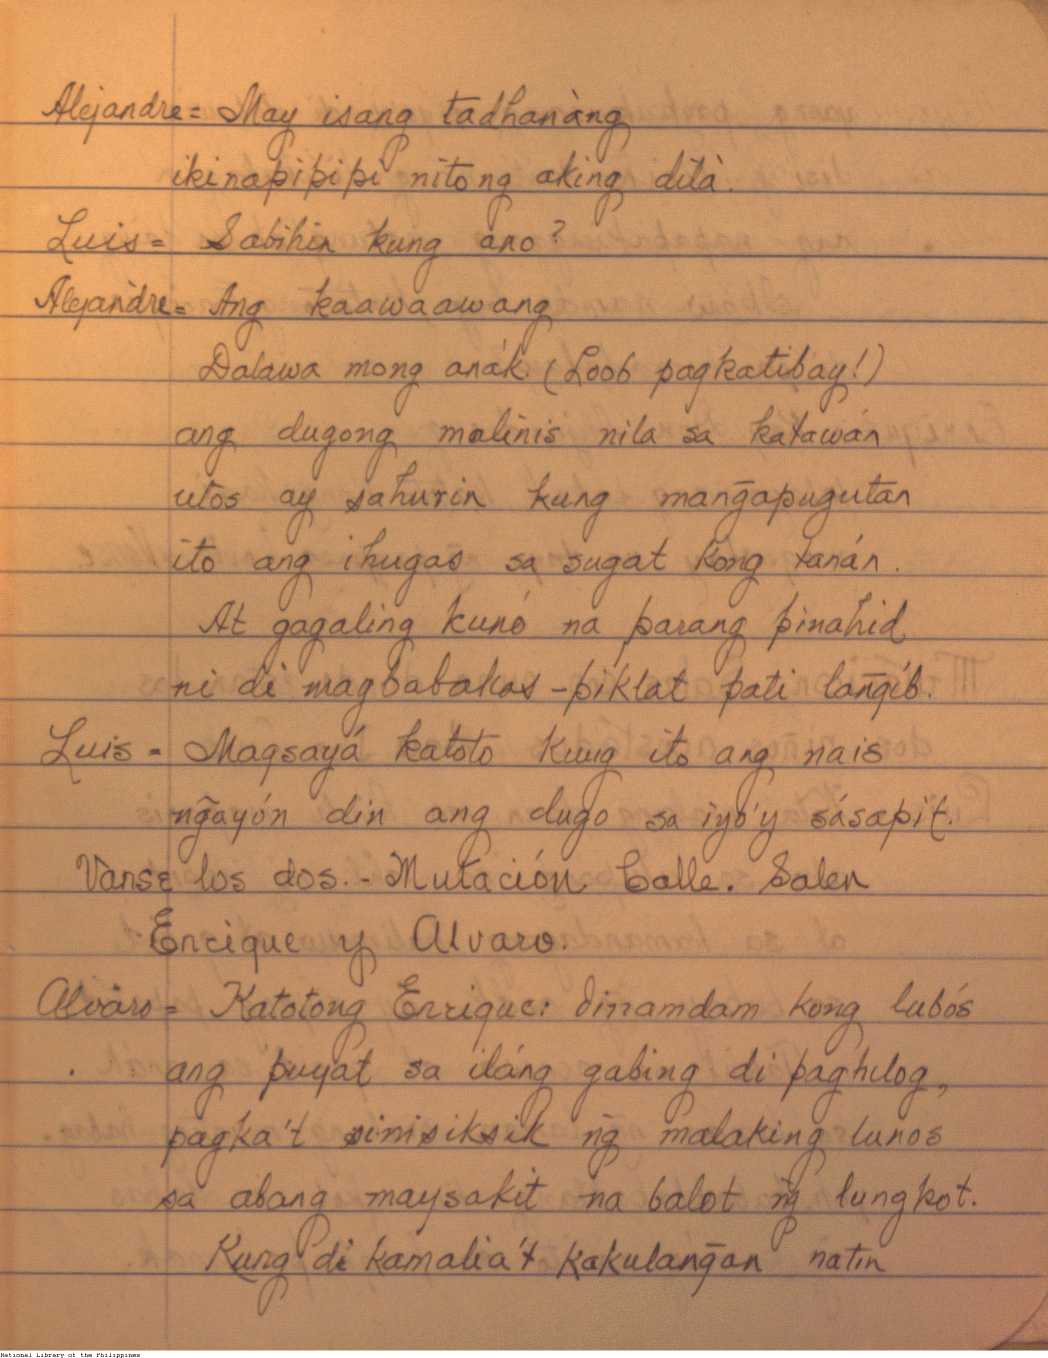 Alejandre = May isang tadhanàng
ikinapipipi nitong aking dilà.
Luis = Sabihin kung ano?
Alejàndre = Ang kaawaawang
Dalawa mong anák. (Loob pagkatibay!)
ang dugong malinis nila sa katawán
utos ay sahurin kung mang̃apugutan
ito ang ihugas sa sugat kong tanán.
At gagaling kunó na parang pinahid
ni di magbabakas - piklat pati lang̃ib.
Luis = Magsayá katoto kung ito ang nais
ng̃ayón din ang dugo sa iyo'y sásapit.
Vanse los dos. - Mutación Calle. Salen
Enrique y Alvaro.
Alvaro = Katotong Enrique: dinamdam kong lubós
ang puyat sa iláng gabing di paghilog,
pagka't sinisiksik ng̃ malaking lunos
sa abang maysakit na balot ng̃ lungkot.
Kung di kamalia't kakulang̃an natin
National Library of the Philippines